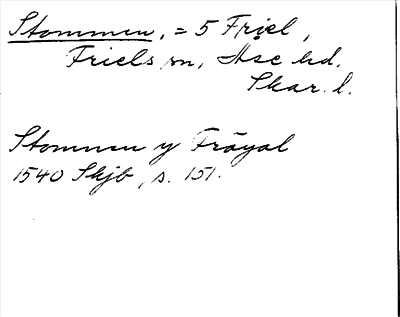 Stommen, = 5 Friel,
Friels sn, Åse hd.
Skar. l.
Stommen y Fröyal
1540 Skjb, s. 151.